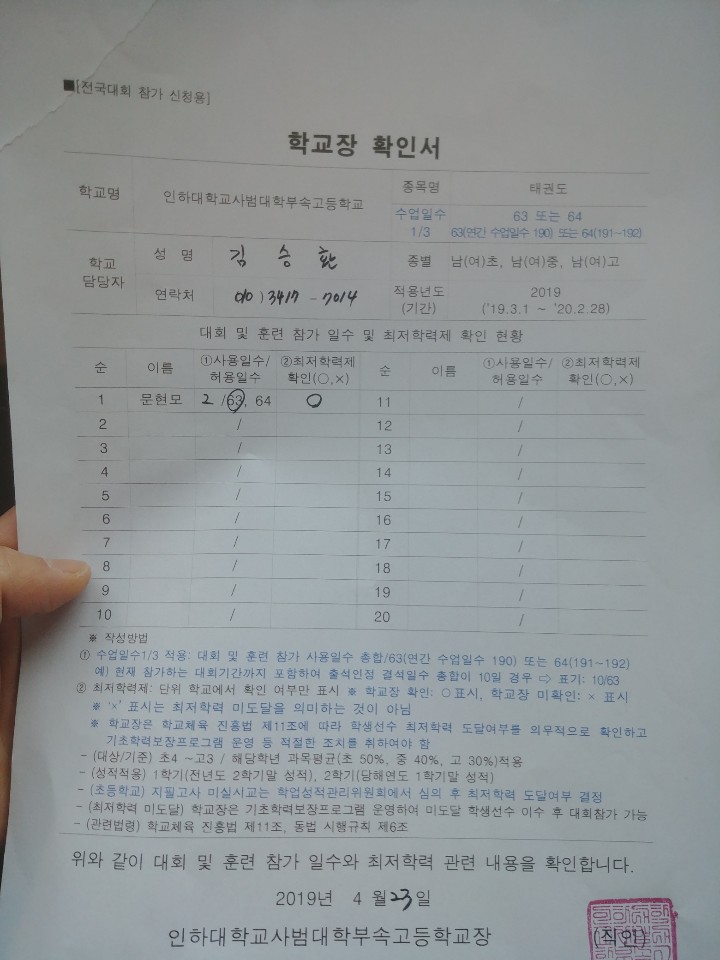 ■[전국대회 참가 신청용]
학교장 확인서
학교명 인하대학교사범대학부속고등학교 종목명 태권도
수업일수 1/3 63 또는 64
63(연간 수업일수 190) 또는 64(191~192)
학교 담당자 성 명 김 승 환 종별 남(여)초, 남(여)중, 남(여)고
연락처 010)3417-7014 적용년도 (기간) 2019
('19.3.1 ~ '20.2.28)
대회 및 훈련 참가 일수 및 최저학력제 확인 현황
순 이름 ①사용일수/허용일수 ②최저학력제 확인(○,×) 순 이름 ①사용일수/허용일수 ②최저학력제 확인(○,×)
1 문현모 2 /63, 64 ○ 11 /
2 / 12 /
3 / 13 /
4 / 14 /
5 / 15 /
6 / 16 /
7 / 17 /
8 / 18 /
9 / 19 /
10 / 20 /
※ 작성방법
① 수업일수1/3 적용: 대회 및 훈련 참가 사용일수 총합/63(연간 수업일수 190) 또는 64(191~192)
예) 현재 참가하는 대회기간까지 포함하여 출석인정 결석일수 총합이 10일 경우 ⇨ 표기: 10/63
② 최저학력제: 단위 학교에서 확인 여부만 표시 ※ 학교장 확인: ○표시, 학교장 미확인: × 표시
※ '×' 표시는 최저학력 미도달을 의미하는 것이 아님
※ 학교장은 학교체육 진흥법 제11조에 따라 학생선수 최저학력 도달여부를 의무적으로 확인하고
기초학력보장프로그램 운영 등 적절한 조치를 취하여야 함
- (대상/기준) 초4 ~고3 / 해당학년 과목평균(초 50%, 중 40%, 고 30%)적용
- (성적적용) 1학기(전년도 2학기말 성적), 2학기(당해연도 1학기말 성적)
- (초등학교) 지필고사 미실시교는 학업성적관리위원회에서 심의 후 최저학력 도달여부 결정
- (최저학력 미도달) 학교장은 기초학력보장프로그램 운영하여 미도달 학생선수 이수 후 대회참가 가능
- (관련법령) 학교체육 진흥법 제11조, 동법 시행규칙 제6조
위와 같이 대회 및 훈련 참가 일수와 최저학력 관련 내용을 확인합니다.
2019년 4 월 23일
인하대학교사범대학부속고등학교장 (직인)